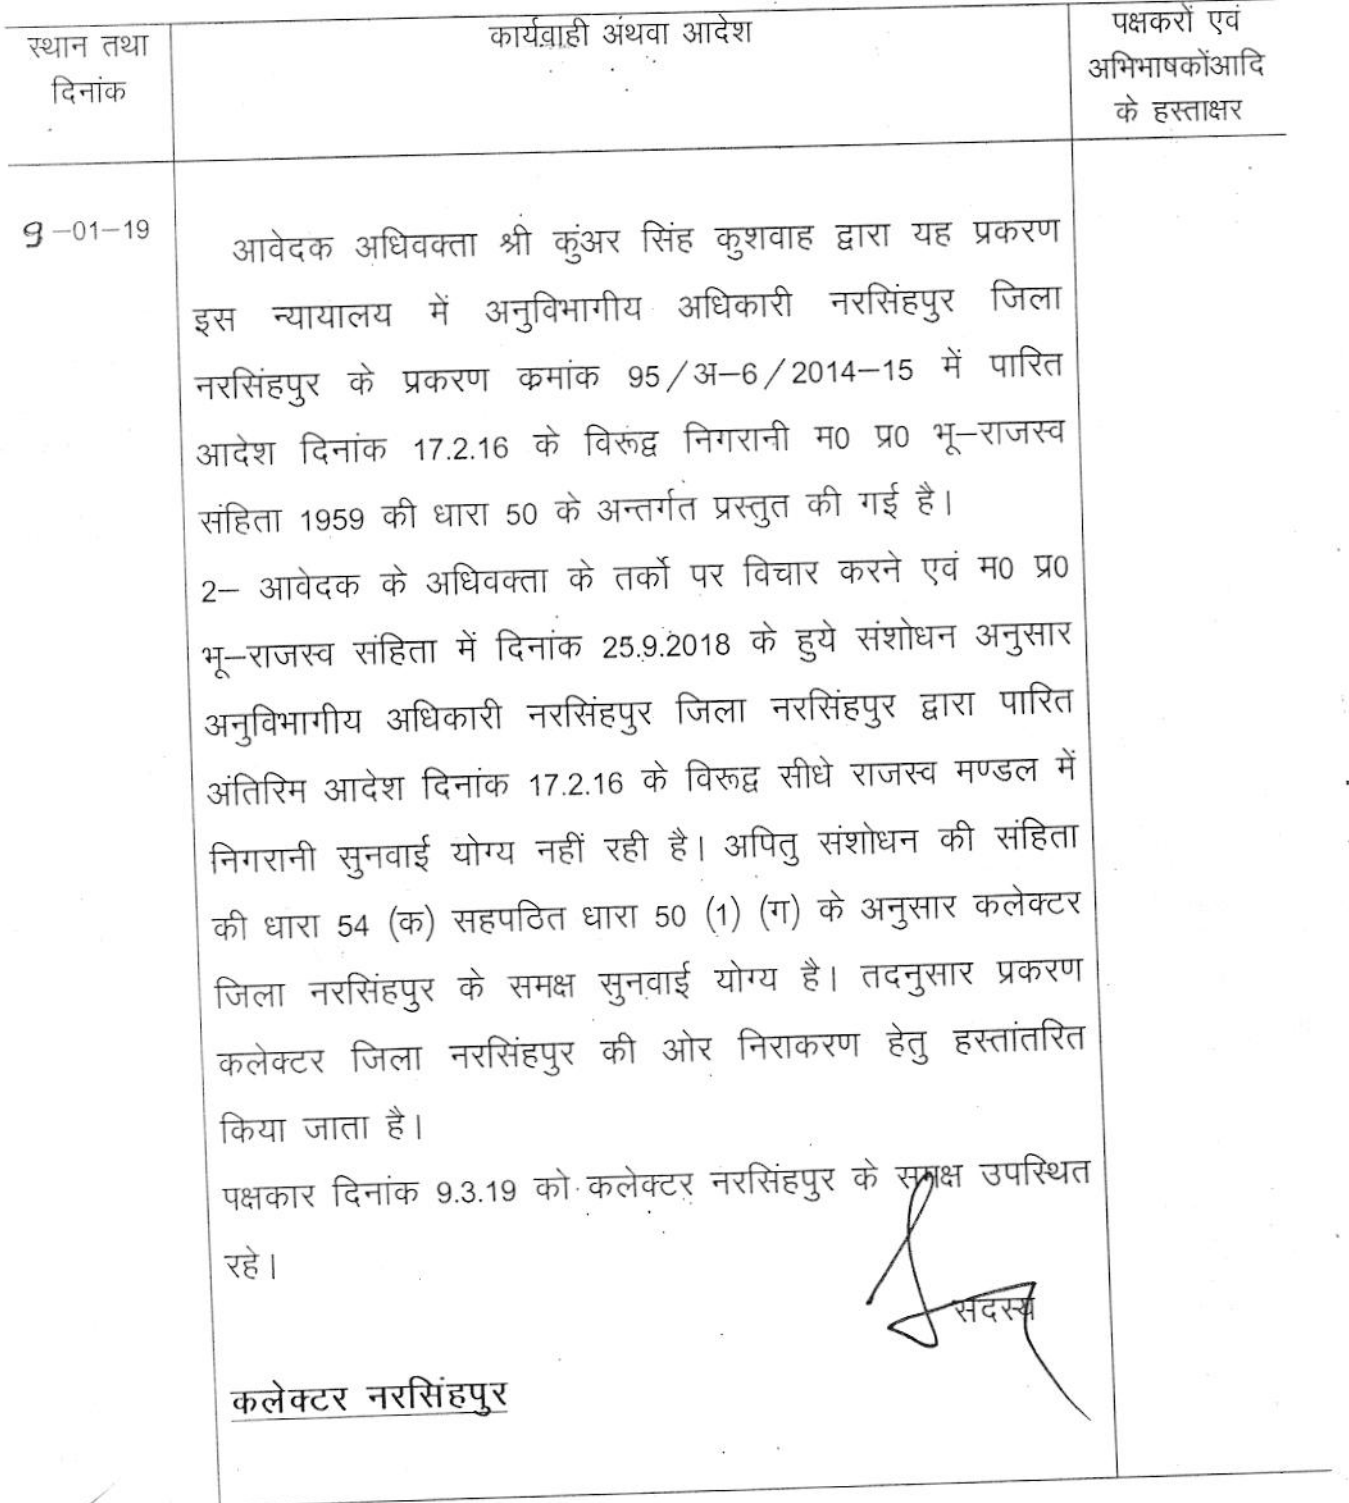 स्थान तथा
दिनांक
कार्यवाही अथवा आदेश
पक्षकरों एवं
अभिभाषकोंआदि
के हस्ताक्षर
9-01-19
आवेदक अधिवक्ता श्री कुंअर सिंह कुशवाह द्वारा यह प्रकरण
इस न्यायालय में अनुविभागीय अधिकारी नरसिंहपुर जिला
नरसिंहपुर के प्रकरण कमांक 95/अ-6/2014-15 में पारित
आदेश दिनांक 17.2.16 के विरूद्व निगरानी म0 प्र0 भू-राजस्व
संहिता 1959 की धारा 50 के अन्तर्गत प्रस्तुत की गई है।
2- आवेदक के अधिवक्ता के तर्को पर विचार करने एवं म0 प्र0
भू-राजस्व संहिता में दिनांक 25.9.2018 के हुये संशोधन अनुसार
अनुविभागीय अधिकारी नरसिंहपुर जिला नरसिंहपुर द्वारा पारित
अंतिरिम आदेश दिनांक 17.2.16 के विरूद्व सीधे राजस्व मण्डल में
निगरानी सुनवाई योग्य नहीं रही है। अपितु संशोधन की संहिता
की धारा 54 (क) सहपठित धारा 50 (1) (ग) के अनुसार कलेक्टर
जिला नरसिंहपुर के समक्ष सुनवाई योग्य है। तदनुसार प्रकरण
कलेक्टर जिला नरसिंहपुर की ओर निराकरण हेतु हस्तांतरित
किया जाता है।
पक्षकार दिनांक 9.3.19 को कलेक्टर नरसिंहपुर के समक्ष उपस्थित
रहे।
सदस्य
कलेक्टर नरसिंहपुर